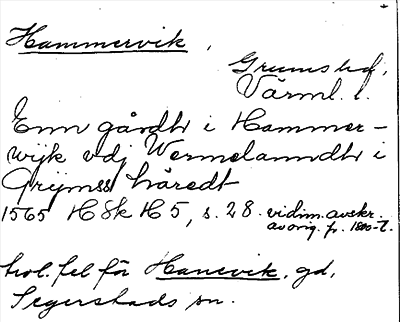 Hammervik,
Grums hd,
Värml. l.
Enn gårdh i Hammer-
wijk vdj Wermelanndh i
Grijmss häredt
1565 H Sk H 5, s. 28. vidim. avskr.
av orig. fr. 1800-t.
trol. fel för Hanevik, gd,
Segerstads sn.